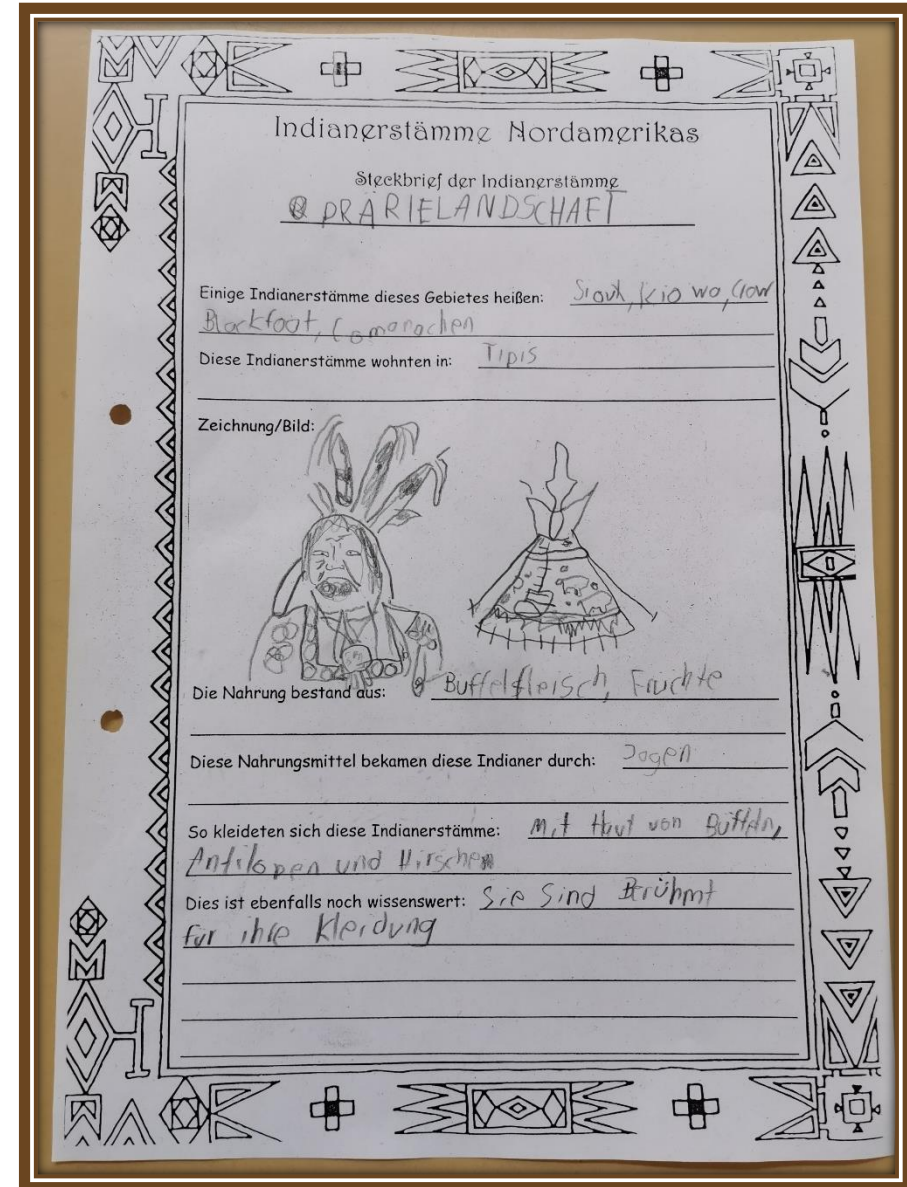 Indianerstämme Nordamerikas
Steckbrief der Indianerstämme
PRARIELANDSCHAFT
Einige Indianerstämme dieses Gebietes heißen: Siouh, Kiowa, Crow
Blackfoot, Comanachen
Diese Indianerstämme wohnten in: Tipis
Zeichnung/Bild:
Die Nahrung bestand aus: Buffelfleisch, Früchte
Diese Nahrungsmittel bekamen diese Indianer durch: Jagen
So kleideten sich diese Indianerstämme: Mit Haut von Büffeln,
Antilopen und Hirschen
Dies ist ebenfalls noch wissenswert: Sie Sind Berühmt
für ihre Kleidung